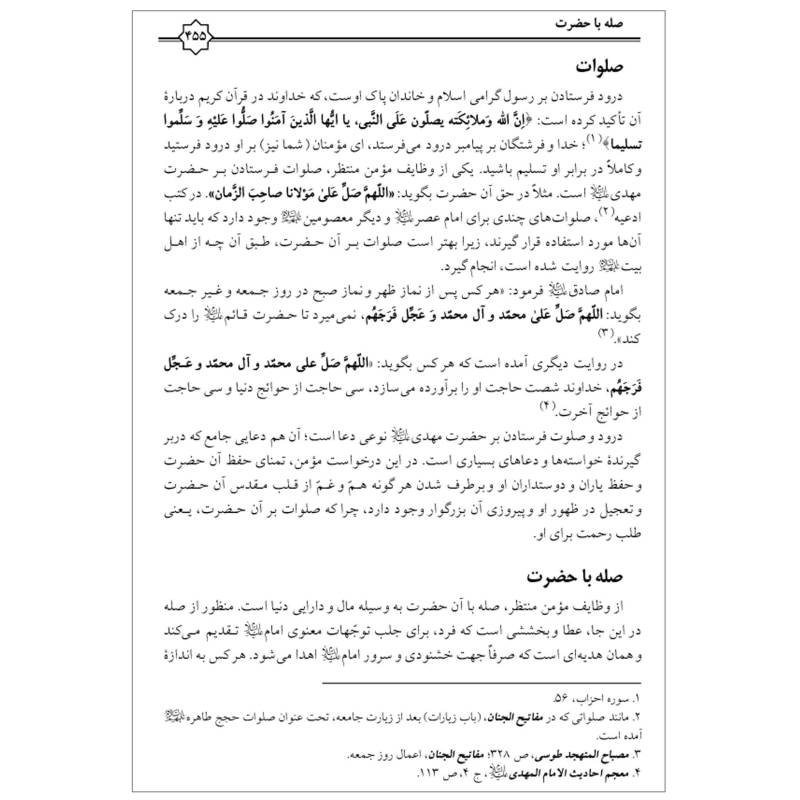 صله با حضرت
۴۵۵
صلوات
درود فرستادن بر رسول گرامی اسلام و خاندان پاک اوست، که خداوند در قرآن کریم دربارهٔ
آن تأکید کرده است: ﴿اِنَّ الله وَملائِکَته یصلّون عَلَی النَّبی، یا ایُّها الَّذینَ آمَنُوا صَلُّوا عَلَیْهِ وَ سَلِّموا
تسلیما﴾(۱)؛ خدا و فرشتگان بر پیامبر درود می‌فرستند، ای مؤمنان (شما نیز) بر او درود فرستید
و کاملاً در برابر او تسلیم باشید. یکی از وظایف مؤمن منتظر، صلوات فرستادن بر حضرت
مهدی است. مثلاً در حق آن حضرت بگوید: «اللّهمَّ صَلِّ عَلیٰ مَوْلانا صاحِبَ الزَّمان». در کتب
ادعیه(۲)، صلوات‌های چندی برای امام عصر و دیگر معصومین وجود دارد که باید تنها
آن‌ها مورد استفاده قرار گیرند، زیرا بهتر است صلوات بر آن حضرت، طبق آن چه از اهل
بیت روایت شده است، انجام گیرد.
امام صادق فرمود: «هر کس پس از نماز ظهر و نماز صبح در روز جمعه و غیر جمعه
بگوید: اللّهمَّ صَلِّ عَلیٰ محمّد و آل محمّد وَ عَجِّل فَرَجَهُم، نمی‌میرد تا حضرت قائم را درک
کند».(۳)
در روایت دیگری آمده است که هر کس بگوید: «اللّهمَّ صَلِّ علی محمّد و آل محمّد و عَجِّل
فَرَجَهُم، خداوند شصت حاجت او را برآورده می‌سازد، سی حاجت از حوائج دنیا و سی حاجت
از حوائج آخرت.(۴)
درود و صلوت فرستادن بر حضرت مهدی نوعی دعا است؛ آن هم دعایی جامع که دربر
گیرندهٔ خواسته‌ها و دعاهای بسیاری است. در این درخواست مؤمن، تمنای حفظ آن حضرت
و حفظ یاران و دوستداران او و برطرف شدن هر گونه همّ و غمّ از قلب مقدس آن حضرت
و تعجیل در ظهور او و پیروزی آن بزرگوار وجود دارد، چرا که صلوات بر آن حضرت، یعنی
طلب رحمت برای او.
صله با حضرت
از وظایف مؤمن منتظر، صله با آن حضرت به وسیله مال و دارایی دنیا است. منظور از صله
در این جا، عطا و بخششی است که فرد، برای جلب توجّهات معنوی امام تقدیم می‌کند
و همان هدیه‌ای است که صرفاً جهت خشنودی و سرور امام اهدا می‌شود. هر کس به اندازهٔ
۱. سوره احزاب، ۵۶.
۲. مانند صلواتی که در مفاتیح الجنان، (باب زیارات) بعد از زیارت جامعه، تحت عنوان صلوات حجج طاهره
آمده است.
۳. مصباح المتهجد طوسی، ص ۳۲۸؛ مفاتیح الجنان، اعمال روز جمعه.
۴. معجم احادیث الامام المهدی، ج ۴، ص ۱۱۳.